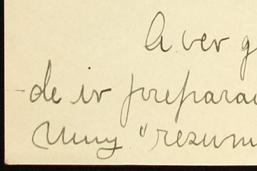 A ver g
de ir prepara
muy "resum